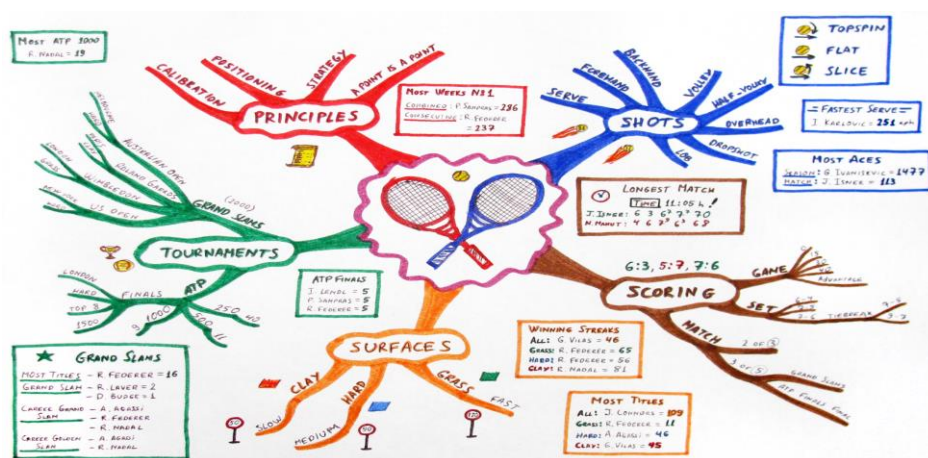 MOST ATP 1000
R. NADAL = 19
CALIBRATION
POSITIONING
STRATEGY
A POINT IS A POINT
PRINCIPLES
MOST WEEKS Nº1
COMBINED: P. SAMPRAS = 286
CONSECUTIVE: R. FEDERER
= 237
SERVE
FOREHAND
BACKHAND
VOLLEY
HALF-VOLLEY
OVERHEAD
DROPSHOT
LOB
SHOTS
TOPSPIN
FLAT
SLICE
FASTEST SERVE
I. KARLOVIC = 251 kph
MOST ACES
SEASON: G. IVANISEVIC = 1477
MATCH: J. ISNER = 113
LONGEST MATCH
TIME 11:05 h!
J. ISNER: 6 3 6 7 70
N. MAHUT: 4 6 7 6 68
AUSTRALIAN OPEN
ROLAND GARROS
WIMBLEDON
LONDON
US OPEN
NEW YORK
GRAND SLAMS
(2000)
TOURNAMENTS
ATP
FINALS
LONDON
HARD
TOP 8
1500
1000
9
500
11
250
40
ATP FINALS
I. LENDL = 5
P. SAMPRAS = 5
R. FEDERER = 5
6:3, 5:7, 7:6
SCORING
GAME
ADVANTAGE
SET
7-6
TIEBREAK
MATCH
2 OF 3
3 OF 5
GRAND SLAMS
ATP FINALS FINAL
SURFACES
CLAY
SLOW
HARD
MEDIUM
GRASS
FAST
WINNING STREAKS
ALL: G. VILAS = 46
GRASS: R. FEDERER = 65
HARD: R. FEDERER = 56
CLAY: R. NADAL = 81
MOST TITLES
ALL: J. CONNORS = 109
GRASS: R. FEDERER = 11
HARD: A. AGASSI = 46
CLAY: G. VILAS = 45
GRAND SLAMS
MOST TITLES - R. FEDERER = 16
GRAND SLAM - R. LAVER = 2
- D. BUDGE = 1
CAREER GRAND SLAM - A. AGASSI
- R. FEDERER
- R. NADAL
CAREER GOLDEN SLAM - A. AGASSI
- R. NADAL